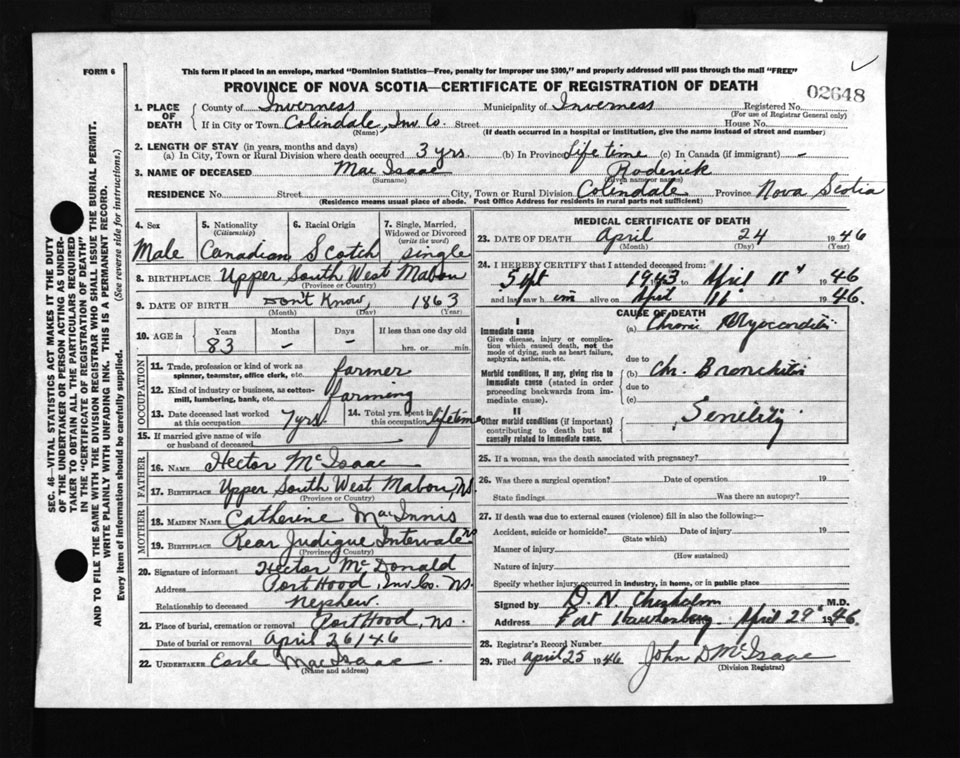 FORM 6
This form if placed in an envelope, marked "Dominion Statistics—Free, penalty for improper use $300," and properly addressed will pass through the mail "FREE"
PROVINCE OF NOVA SCOTIA—CERTIFICATE OF REGISTRATION OF DEATH
02648
1. PLACE OF DEATH
County of Inverness Municipality of Inverness Registered No.
(For use of Registrar General only)
If in City or Town Colindale, Inv. Co. Street House No.
(Name) (If death occurred in a hospital or institution, give the name instead of street and number)
2. LENGTH OF STAY (in years, months and days)
(a) In City, Town or Rural Division where death occurred 3 yrs. (b) In Province Life time (c) In Canada (if immigrant) -
3. NAME OF DECEASED Mac Isaac Roderick
(Surname) (Given name or names)
RESIDENCE No. Street City, Town or Rural Division Colindale Province Nova Scotia
(Residence means usual place of abode. Post Office Address for residents in rural parts not sufficient)
4. Sex 5. Nationality (Citizenship) 6. Racial Origin 7. Single, Married, Widowed or Divorced (write the word)
Male Canadian Scotch single
8. BIRTHPLACE Upper South West Mabou
(Province or Country)
9. DATE OF BIRTH Don't Know, 1863
(Month) (Day) (Year)
10. AGE in Years Months Days If less than one day old
83 - - hrs. or min.
OCCUPATION
11. Trade, profession or kind of work as spinner, teamster, office clerk, etc. farmer
12. Kind of industry or business, as cotton-mill, lumbering, bank, etc. farming
13. Date deceased last worked at this occupation 7 yrs. 14. Total yrs. spent in this occupation lifetime
15. If married give name of wife or husband of deceased
FATHER
16. NAME Hector McIsaac
17. BIRTHPLACE Upper South West Mabou, NS.
(Province or Country)
MOTHER
18. MAIDEN NAME Catherine MacInnis
19. BIRTHPLACE Rear Judique Intervale NS
(Province or Country)
20. Signature of informant Hector McDonald
Address Port Hood, Inv. Co. NS.
Relationship to deceased nephew.
21. Place of burial, cremation or removal Port Hood, NS.
Date of burial or removal April 26/46
22. UNDERTAKER Earle MacIsaac
(Name and address)
MEDICAL CERTIFICATE OF DEATH
23. DATE OF DEATH April 24 1946
(Month) (Day) (Year)
24. I HEREBY CERTIFY that I attended deceased from:
Sept 1943 to April 11" 1946
and last saw him alive on April 11" 1946.
CAUSE OF DEATH
I
Immediate cause (a) Chronic Myocarditis
Give disease, injury or complication which caused death, not the mode of dying, such as heart failure, asphyxia, asthenia, etc.
due to
Morbid conditions, if any, giving rise to immediate cause (stated in order proceeding backwards from immediate cause). (b) Ch. Bronchitis
due to
(c)
II
Other morbid conditions (if important) contributing to death but not causally related to immediate cause. Senility
25. If a woman, was the death associated with pregnancy?
26. Was there a surgical operation? Date of operation 19
State findings Was there an autopsy?
27. If death was due to external causes (violence) fill in also the following:—
Accident, suicide or homicide? Date of injury 19
(State which)
Manner of injury
(How sustained)
Nature of injury
Specify whether injury occurred in industry, in home, or in public place
Signed by D. N. Chisholm M.D.
Address Port Hawkesbury April 29" 1946.
28. Registrar's Record Number
29. Filed April 25 1946 John D McIsaac
(Division Registrar)
SEC. 46—VITAL STATISTICS ACT MAKES IT THE DUTY
OF THE UNDERTAKER OR PERSON ACTING AS UNDER-
TAKER TO OBTAIN ALL THE PARTICULARS REQUIRED
IN THE "CERTIFICATE OF REGISTRATION OF DEATH"
AND TO FILE THE SAME WITH THE DIVISION REGISTRAR WHO SHALL ISSUE THE BURIAL PERMIT.
WRITE PLAINLY WITH UNFADING INK. THIS IS A PERMANENT RECORD.
Every item of information should be carefully supplied. (See reverse side for instructions.)